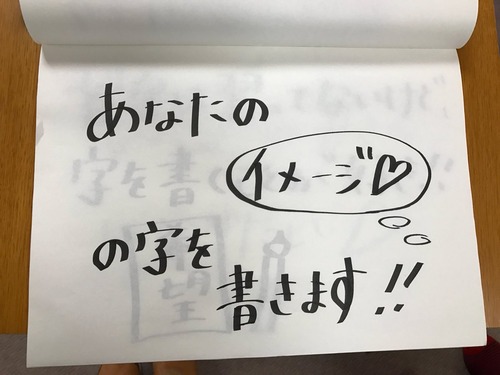 あなたの
イメージ♡
の字を
書きます!!